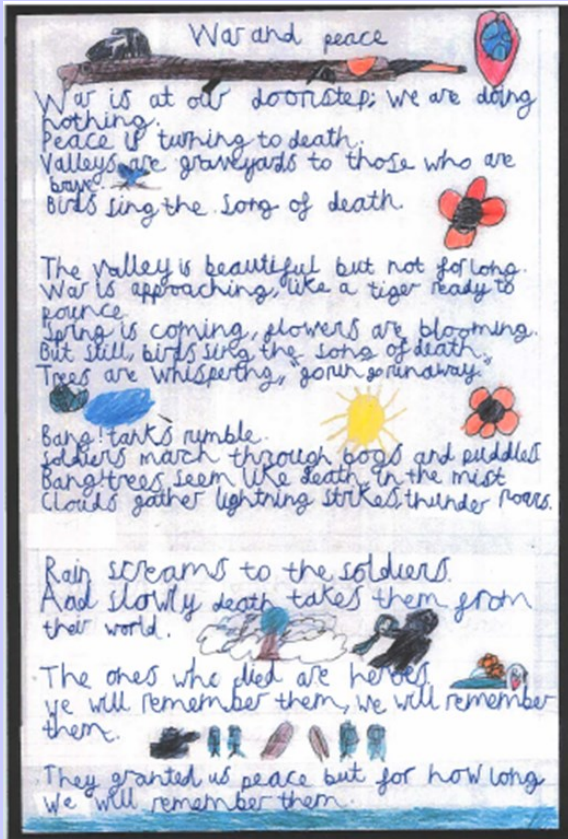 War and peace
War is at our doorstep; we are doing
nothing.
Peace is turning to death.
Valleys are graveyards to those who are
brave.
Birds sing the song of death.
The valley is beautiful but not for long.
War is approaching, like a tiger ready to
pounce
Spring is coming, flowers are blooming.
But still, birds sing the song of death.
Trees are whispering, "go run go run away"
Bang! tanks rumble.
Soldiers march through bogs and puddles
Bang! trees seem like death in the mist
Clouds gather lightning strikes, thunder roars.
Rain screams to the soldiers.
And slowly death takes them from
their world.
The ones who died are heroes
We will remember them, we will remember
them.
They granted us peace but for how long
We will remember them.